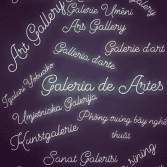 Galerie Umění
Art Gallery
Art Gallery
Galerie d'art
Galleria d'arte
Galería de Artes
Umjetnička Galerija
Phòng trưng bày nghệ
thuật
Kunstgalerie
Sanat Galerisi